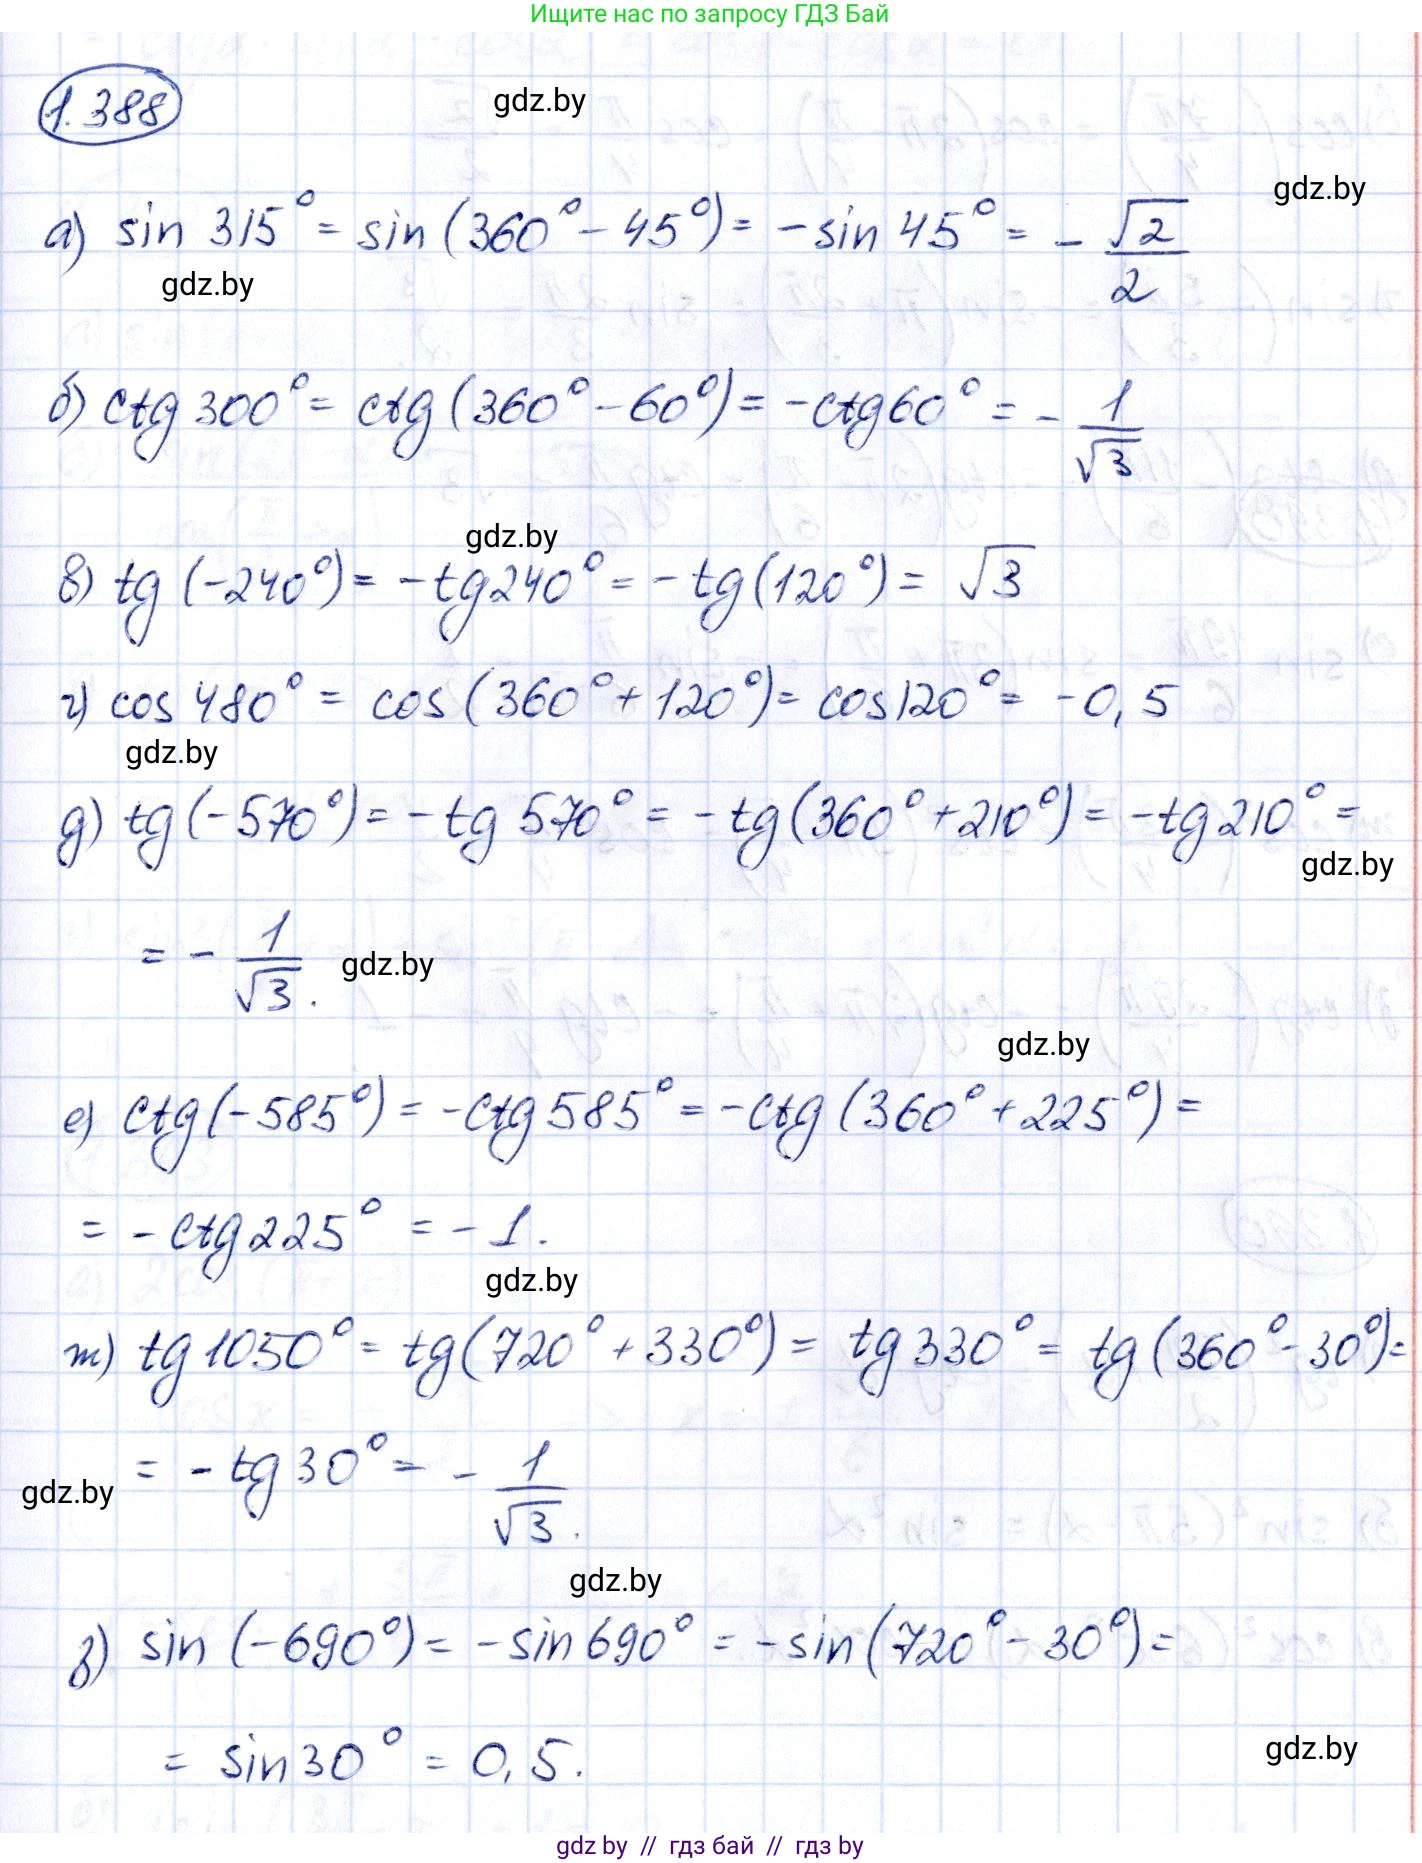 Ищите нас по запросу ГДЗ Бай
1.388
gdz.by
gdz.by
а) sin 315° = sin (360° - 45°) = - sin 45° = - √2/2
gdz.by
б) ctg 300° = ctg (360° - 60°) = - ctg 60° = - 1/√3
gdz.by
в) tg (-240°) = - tg 240° = - tg (120°) = √3
г) cos 480° = cos (360° + 120°) = cos 120° = -0,5
gdz.by
д) tg (-570°) = - tg 570° = - tg (360° + 210°) = - tg 210° =
gdz.by
= - 1/√3.
gdz.by
gdz.by
е) ctg (-585°) = - ctg 585° = - ctg (360° + 225°) =
= - ctg 225° = - 1.
gdz.by
ж) tg 1050° = tg (720° + 330°) = tg 330° = tg (360° - 30°) =
= - tg 30° = - 1/√3.
gdz.by
gdz.by
з) sin (-690°) = - sin 690° = - sin (720° - 30°) =
= sin 30° = 0,5.
gdz.by
gdz by // гдз бай // гдз by